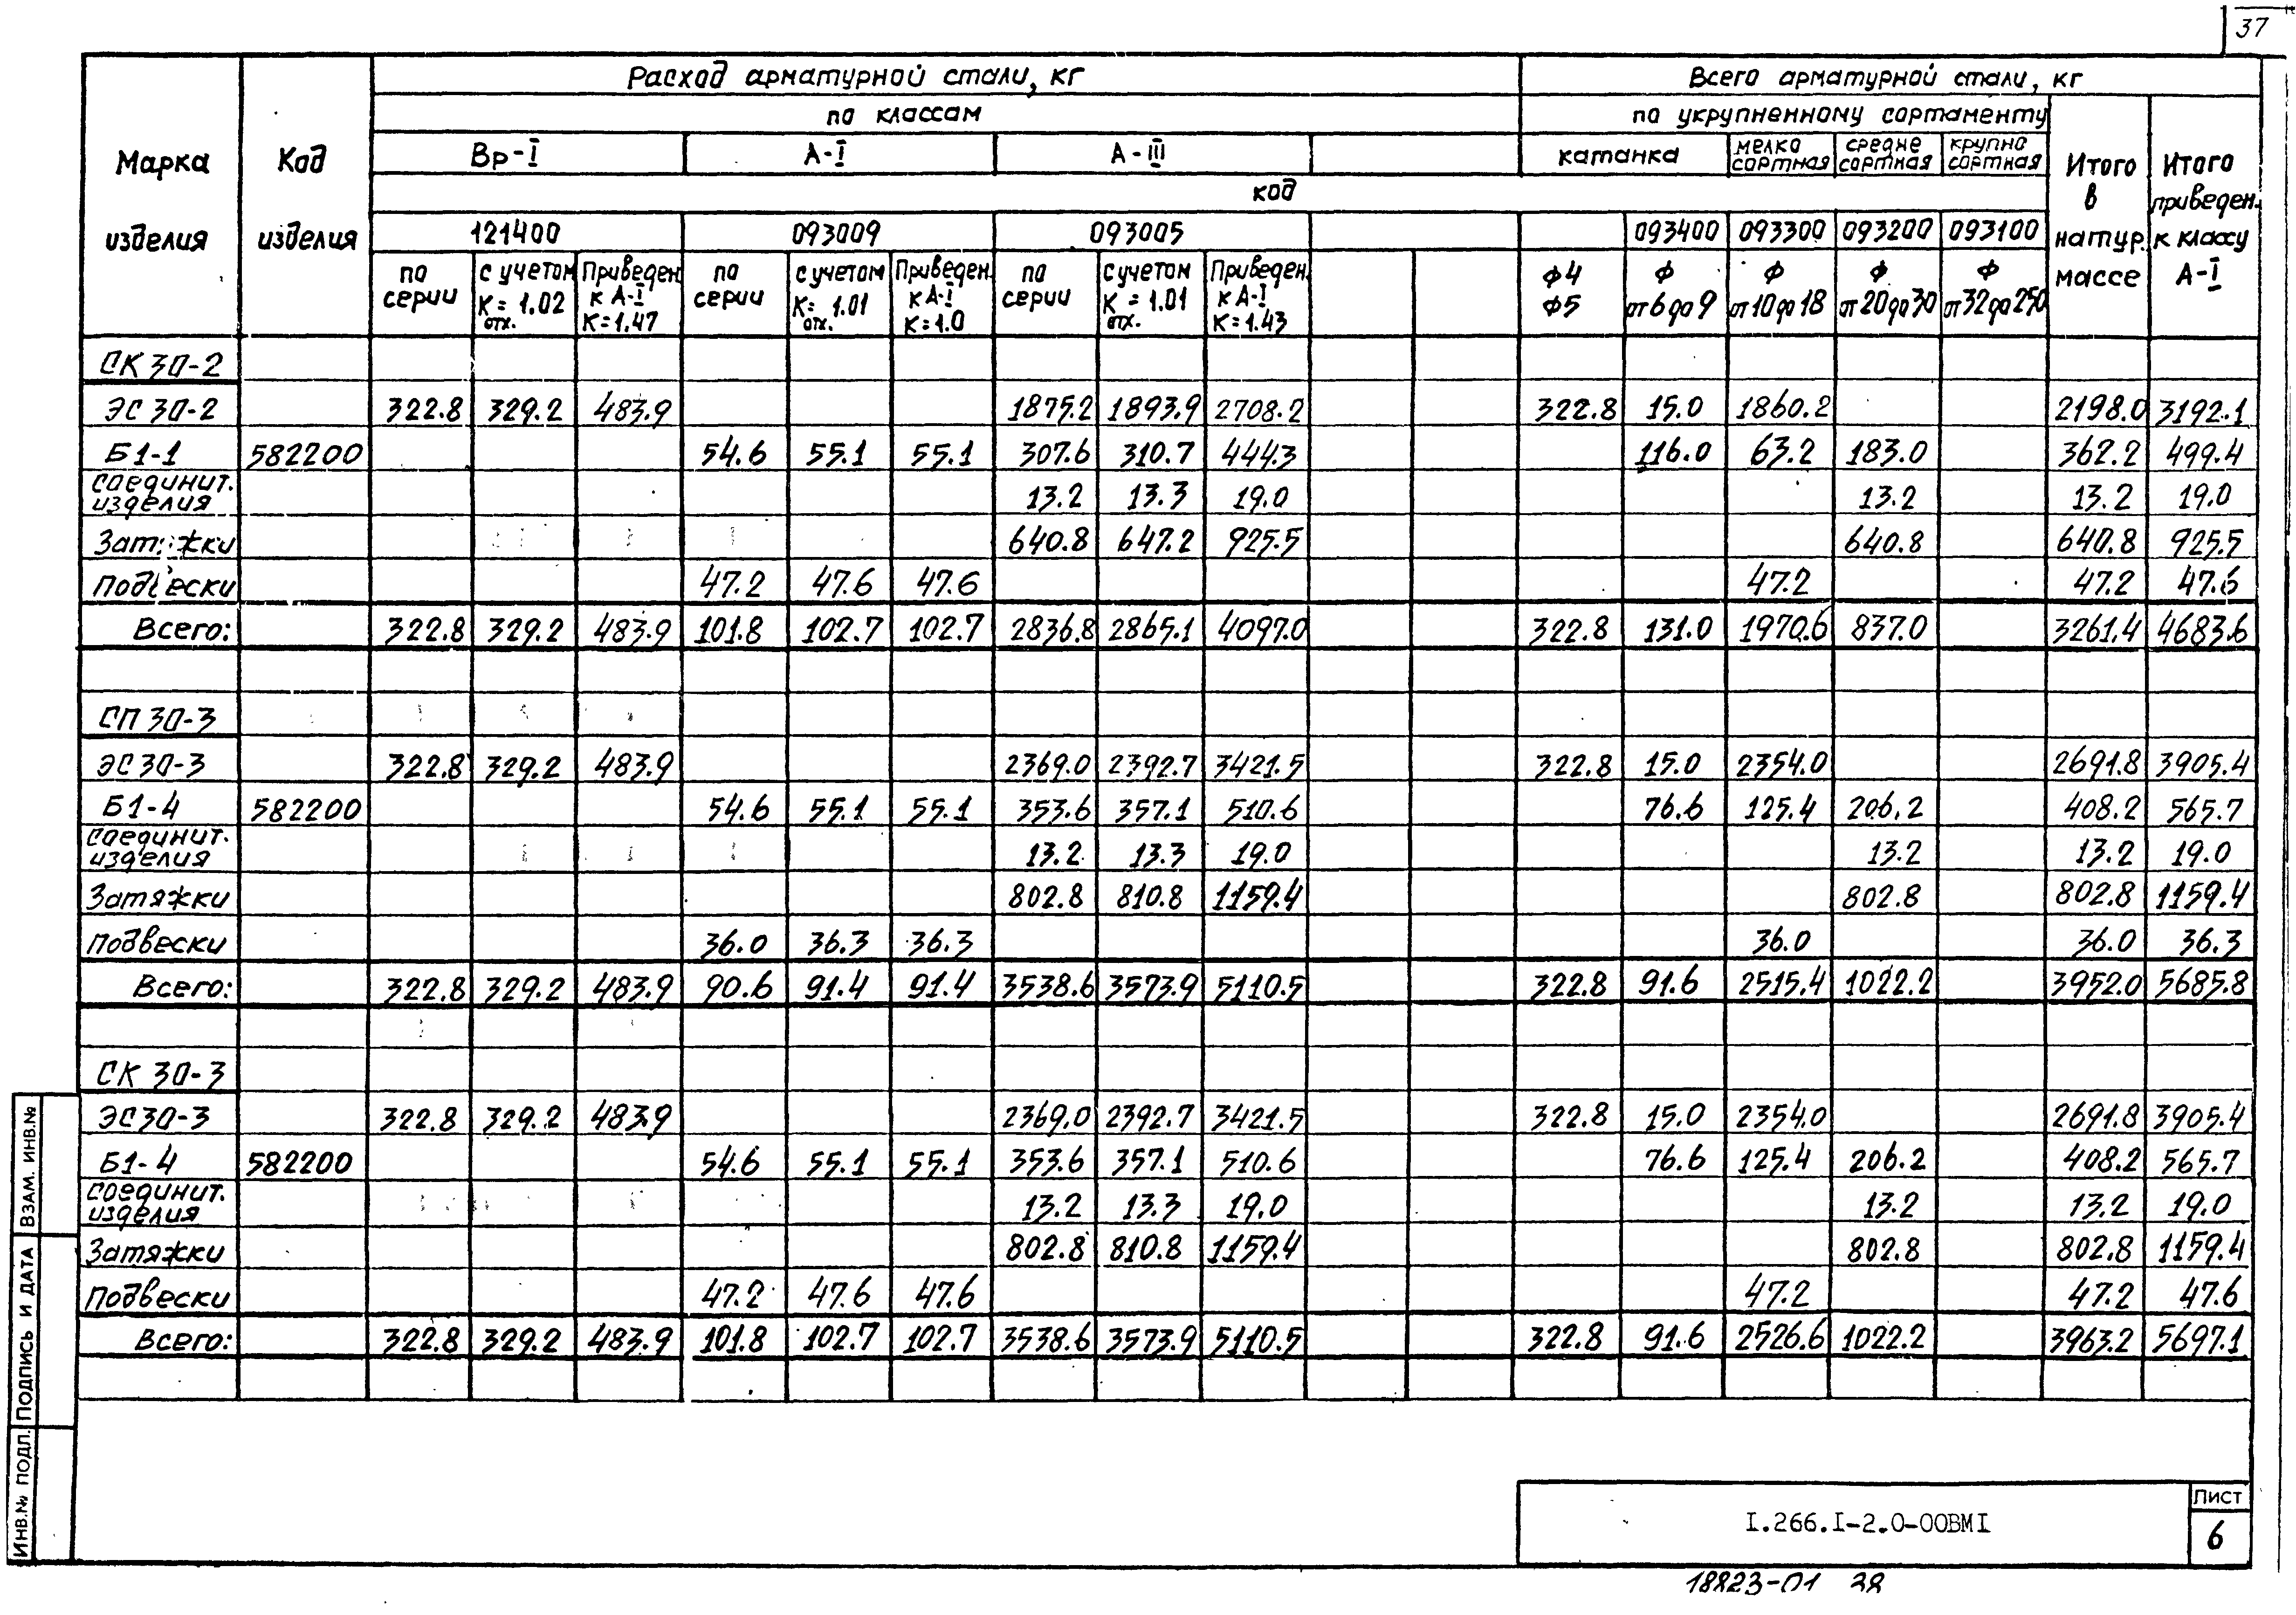 37
Расход арматурной стали, кг Всего арматурной стали, кг
по классам по укрупненному сортаменту
Марка изделия Код изделия Вр-I А-I А-III катанка мелко сортная средне сортная крупно сортная Итого в натур. массе Итого приведен. к классу А-I
код
121400 093009 093005 093400 093300 093200 093100
по серии с учетом Котх.=1.02 Приведен. к А-I К=1.47 по серии с учетом Котх.=1.01 Приведен. к А-I К=1.0 по серии с учетом Котх.=1.01 Приведен. к А-I К=1.43 ф4 ф5 ф от 6 до 9 ф от 10 до 18 ф от 20 до 30 ф от 32 до 250
СК 30-2
ЭС 30-2 322.8 329.2 483.9 1875.2 1893.9 2708.2 322.8 15.0 1860.2 2198.0 3192.1
Б1-1 582200 54.6 55.1 55.1 307.6 310.7 444.3 116.0 63.2 183.0 362.2 499.4
Соединит. изделия 13.2 13.3 19.0 13.2 13.2 19.0
Затяжки 640.8 647.2 925.5 640.8 640.8 925.5
Подвески 47.2 47.6 47.6 47.2 47.2 47.6
Всего: 322.8 329.2 483.9 101.8 102.7 102.7 2836.8 2865.1 4097.0 322.8 131.0 1970.6 837.0 3261.4 4683.6
СП 30-3
ЭС 30-3 322.8 329.2 483.9 2369.0 2392.7 3421.5 322.8 15.0 2354.0 2691.8 3905.4
Б1-4 582200 54.6 55.1 55.1 353.6 357.1 510.6 76.6 125.4 206.2 408.2 565.7
Соединит. изделия 13.2 13.3 19.0 13.2 13.2 19.0
Затяжки 802.8 810.8 1159.4 802.8 802.8 1159.4
Подвески 36.0 36.3 36.3 36.0 36.0 36.3
Всего: 322.8 329.2 483.9 90.6 91.4 91.4 3538.6 3573.9 5110.5 322.8 91.6 2515.4 1022.2 3952.0 5685.8
СК 30-3
ЭС 30-3 322.8 329.2 483.9 2369.0 2392.7 3421.5 322.8 15.0 2354.0 2691.8 3905.4
Б1-4 582200 54.6 55.1 55.1 353.6 357.1 510.6 76.6 125.4 206.2 408.2 565.7
Соединит. изделия 13.2 13.3 19.0 13.2 13.2 19.0
Затяжки 802.8 810.8 1159.4 802.8 802.8 1159.4
Подвески 47.2 47.6 47.6 47.2 47.2 47.6
Всего: 322.8 329.2 483.9 101.8 102.7 102.7 3538.6 3573.9 5110.5 322.8 91.6 2526.6 1022.2 3963.2 5697.1
Инв.№ подл. Подпись и дата Взам. инв.№
I.266.I-2.0-00ВМI
Лист
6
18823-01 38